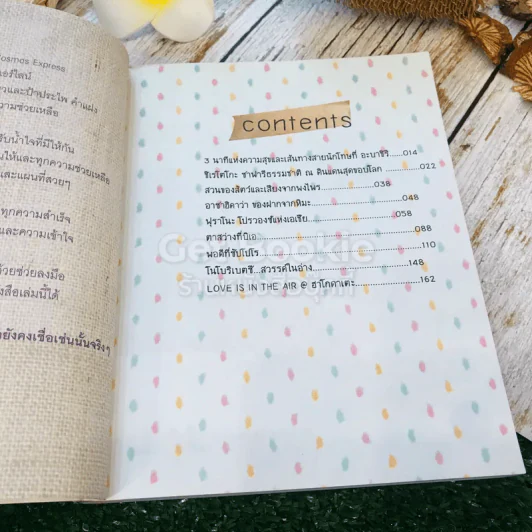 Cosmos Express
contents
3 นาทีแห่งความสุขและเส้นทางสายนักโทษที่ อะบาชิริ.....014
ชิเรโตโกะ ซาฟารีธรรมชาติ ณ ดินแดนสุดขอบโลก ............022
สวนของสัตว์และเสียงจากพงไพร..............038
อาซาฮิดาว่า ของฝากจากหิมะ......................048
ฟุราโนะ โปรวองซ์แห่งเอเชีย......................058
ตาสว่างที่บิเอ..............................................088
พอดีที่ซัปโปโร...........................................110
โนโบริเบตซึ...สวรรค์ในอ่าง......................148
LOVE IS IN THE AIR @ ฮาโกดาเตะ..................162
และป้าประไพ คำแฝง
ความช่วยเหลือ
รับน้ำใจที่มีให้กัน
นให้และทุกความช่วยเหลือ
และแผนที่สวยๆ
ทุกความสำเร็จ
และความเข้าใจ
ด้วยช่วยลงมือ
สือเล่มนี้ได้
ายังคงเชื่อเช่นนั้นจริงๆ